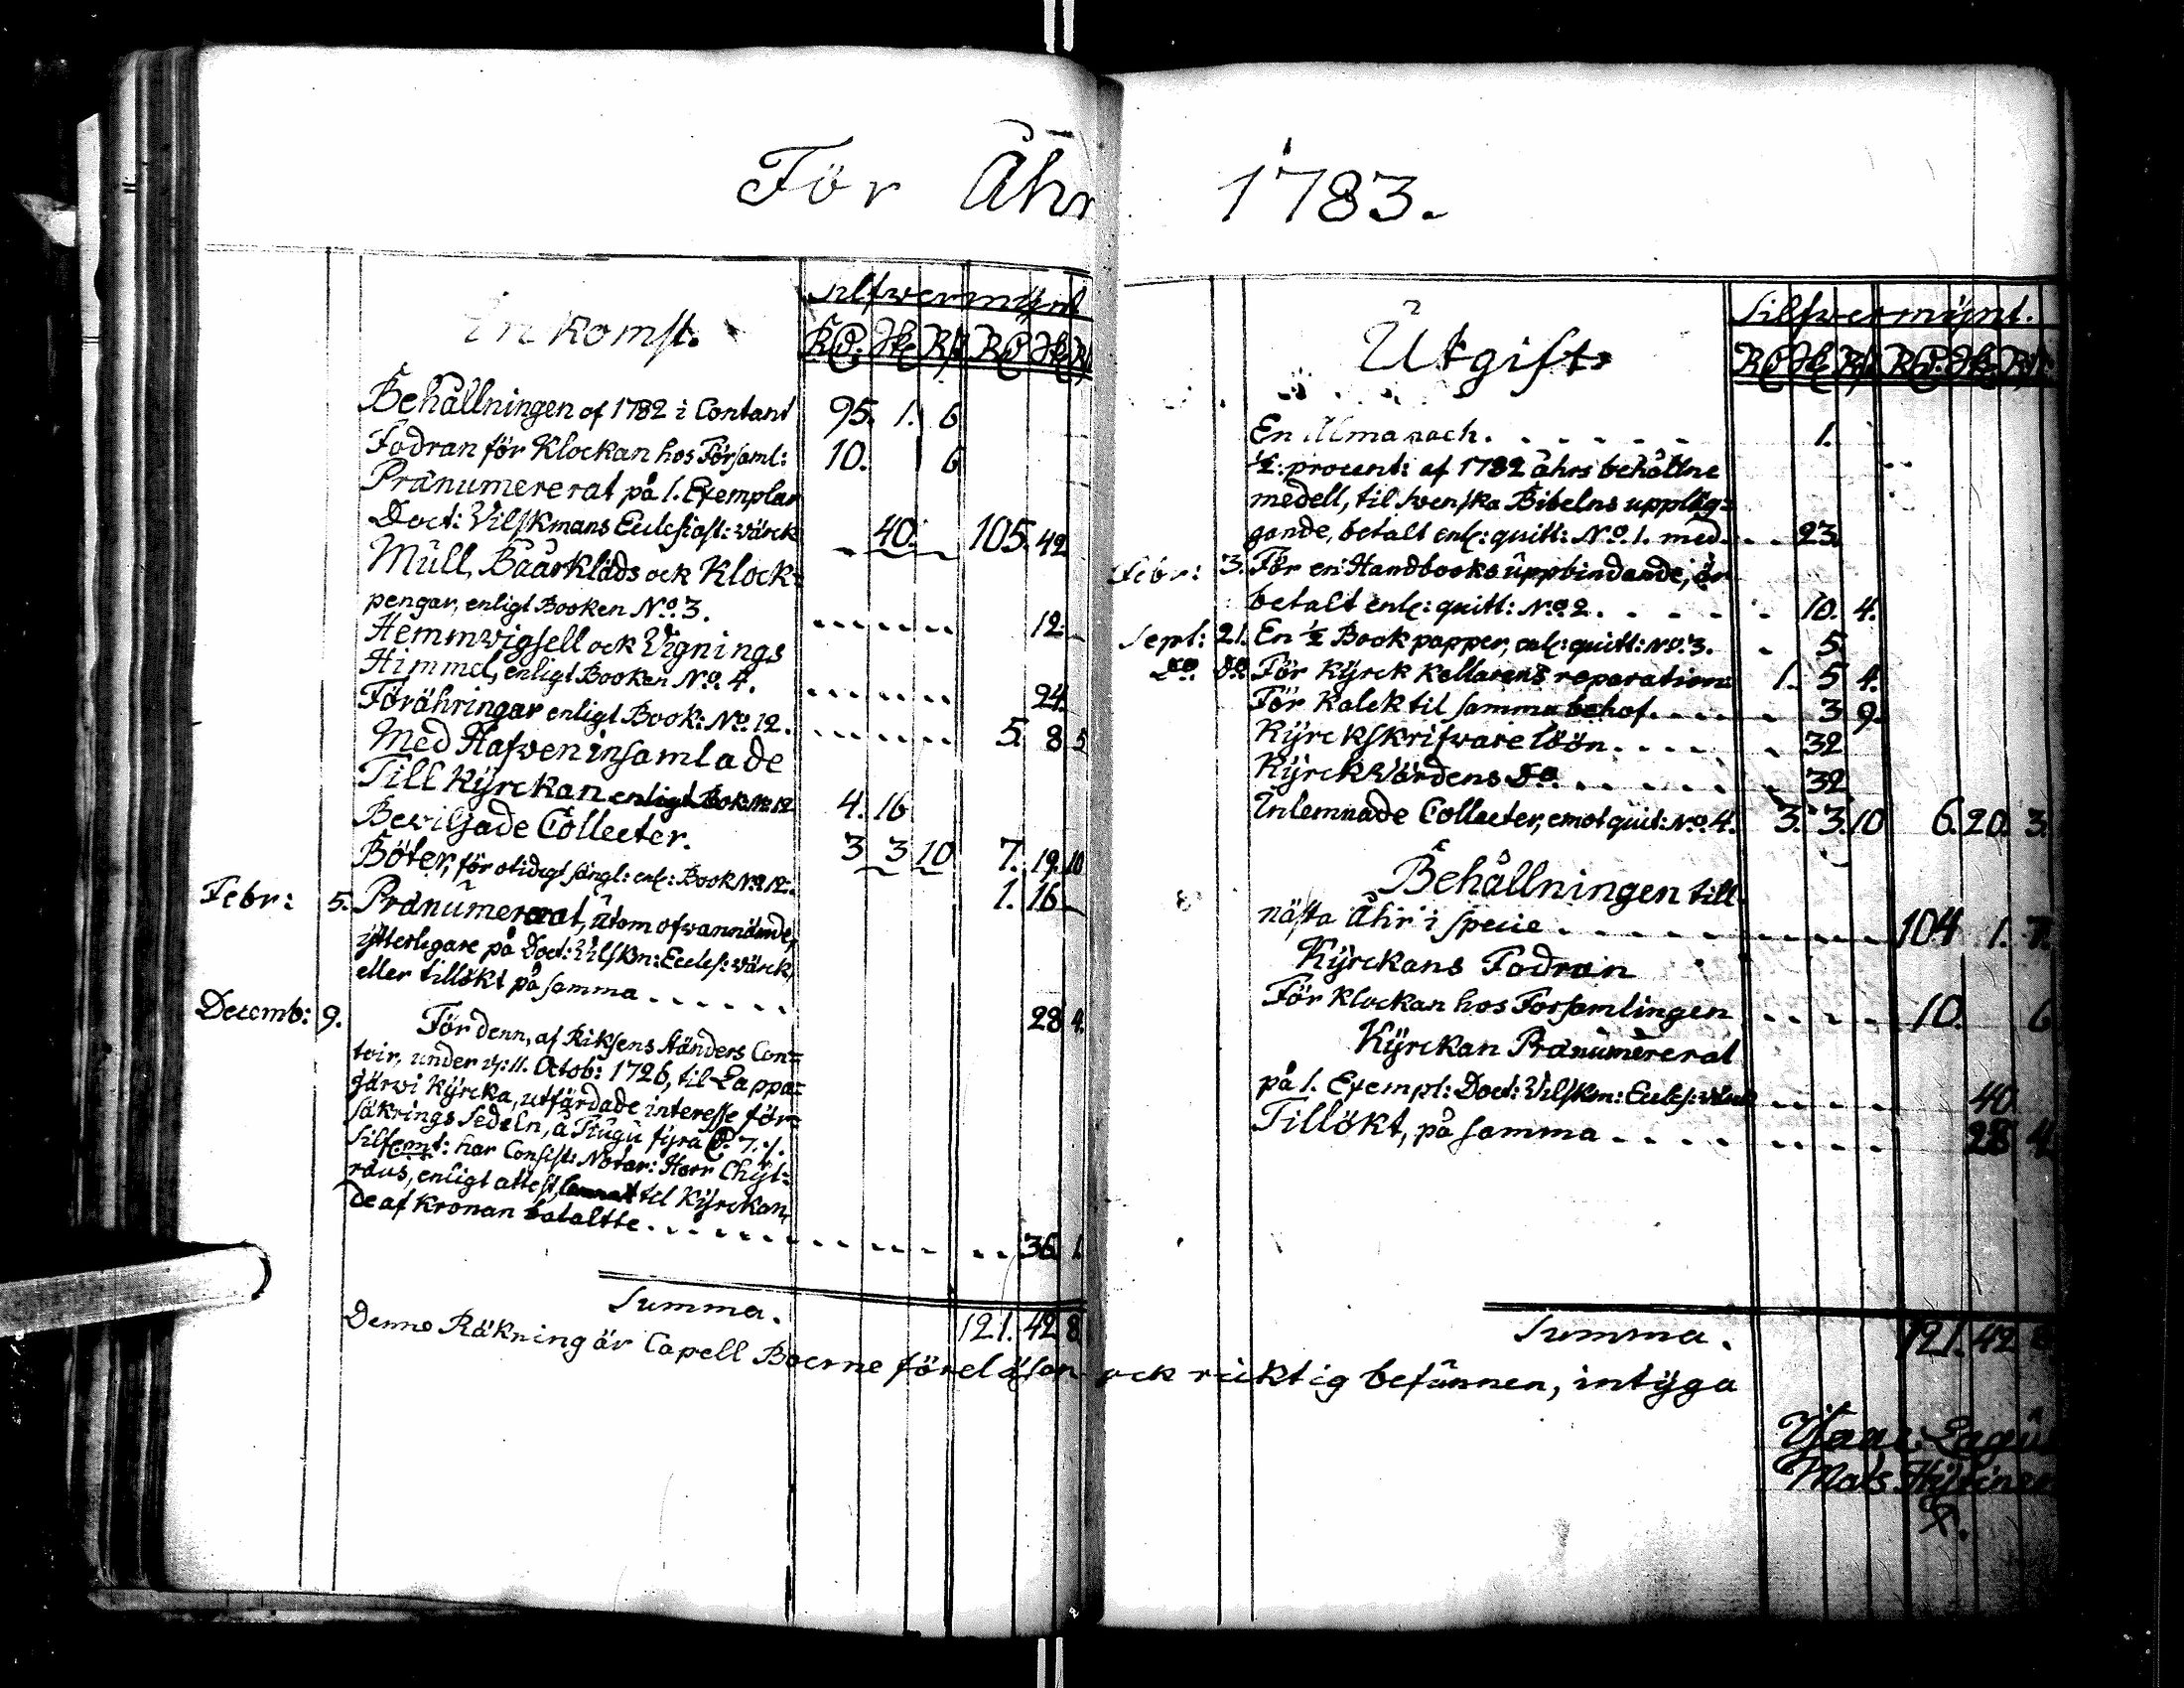 För Åhr 1783.
Inkomst. Silfwermÿnt
RD. Sk. Rst. RD Sk. Rst
Behållningen af 1782 i Contant 95. 1. 6
Fodran för Klockan hos Församl: 10. 6
Pränumererat på 1. Exemplar
Doct: Vilskmans Ecclesiast: värck 40. 105. 42
Mull, Båårkläds ock Klock-
pengar, enligt Booken No. 3. 12.
Hemmvigsell ock Vignings
Himmel, enligt Booken No. 4. 24.
Förähringar enligt Book: No. 12. 5. 8 5
Med Hafven insamlade
Till Kÿrckan enligt Bok: No 12 4. 16
Beviljade Collecter. 3 3 10 7. 19. 10
Böter, för otidigt sängl: enl: Book No. 12. 1. 16
Febr: 5. Pränumererat, utom ofvannämde,
ÿtterligare på Doct: Vilskm: Eccles: värck,
eller tillökt på samma 28 4.
Decemb: 9. För denn, af Riksens Ständers Con-
toir, under d: 11. Octob: 1726, til Lappa-
järwi Kÿrcka, utfärdade interesse för-
säkrings Sedeln, à Tiugu fÿra D. 7. /.
Silfvmt: har Consist: Notar: Herr Chÿt-
räus, enligt attest, til Kÿrckan,
de af Kronan betaltte 36. 1.
Summa. 121. 42 8
Denne Räkning är Capell Boerne föreläsen ock ricktig befunnen, intÿga
Utgift. Silfwermÿnt.
RD Sk Rst RD. Sk. Rst
En Almanach. 1.
½: procent: af 1782 åhrs behåldne
medell, til svenska Bibelns uppläg-
gande, betalt enl: quitt: No. 1. med 23.
Febr: 3. För en Handbooks uppbindande, är
betalt enl: quitt: No. 2. 10. 4.
Sept: 21. En ½ Book papper, enl: quitt: No. 3. 5
Do Do För Kÿrck Kellarens reparation 1. 5 4.
För Kalck til samma behof. 3 9.
Kÿrckskrifvare löön. 32
KÿrckVärdens Do. 32
Inlemnade Collecter, emot quit: No. 4. 3. 3. 10 6. 20. 3.
Behållningen till
nästa Åhr i specie 104 1. 7.
Kÿrckans Fodran
För Klockan hos Församlingen 10. 6
Kÿrckan Pränumererat
på 1. Exempl: Doct: Vilskm: Eccles: 40
Tillökt, på samma 28 4.
Summa. 121. 42 8
Mats